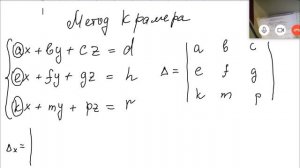 Метод Крамера
ax + by + cz = d
ex + fy + gz = h
kx + my + pz = r
Δ = | a b c |
| e f g |
| k m p |
Δx = |